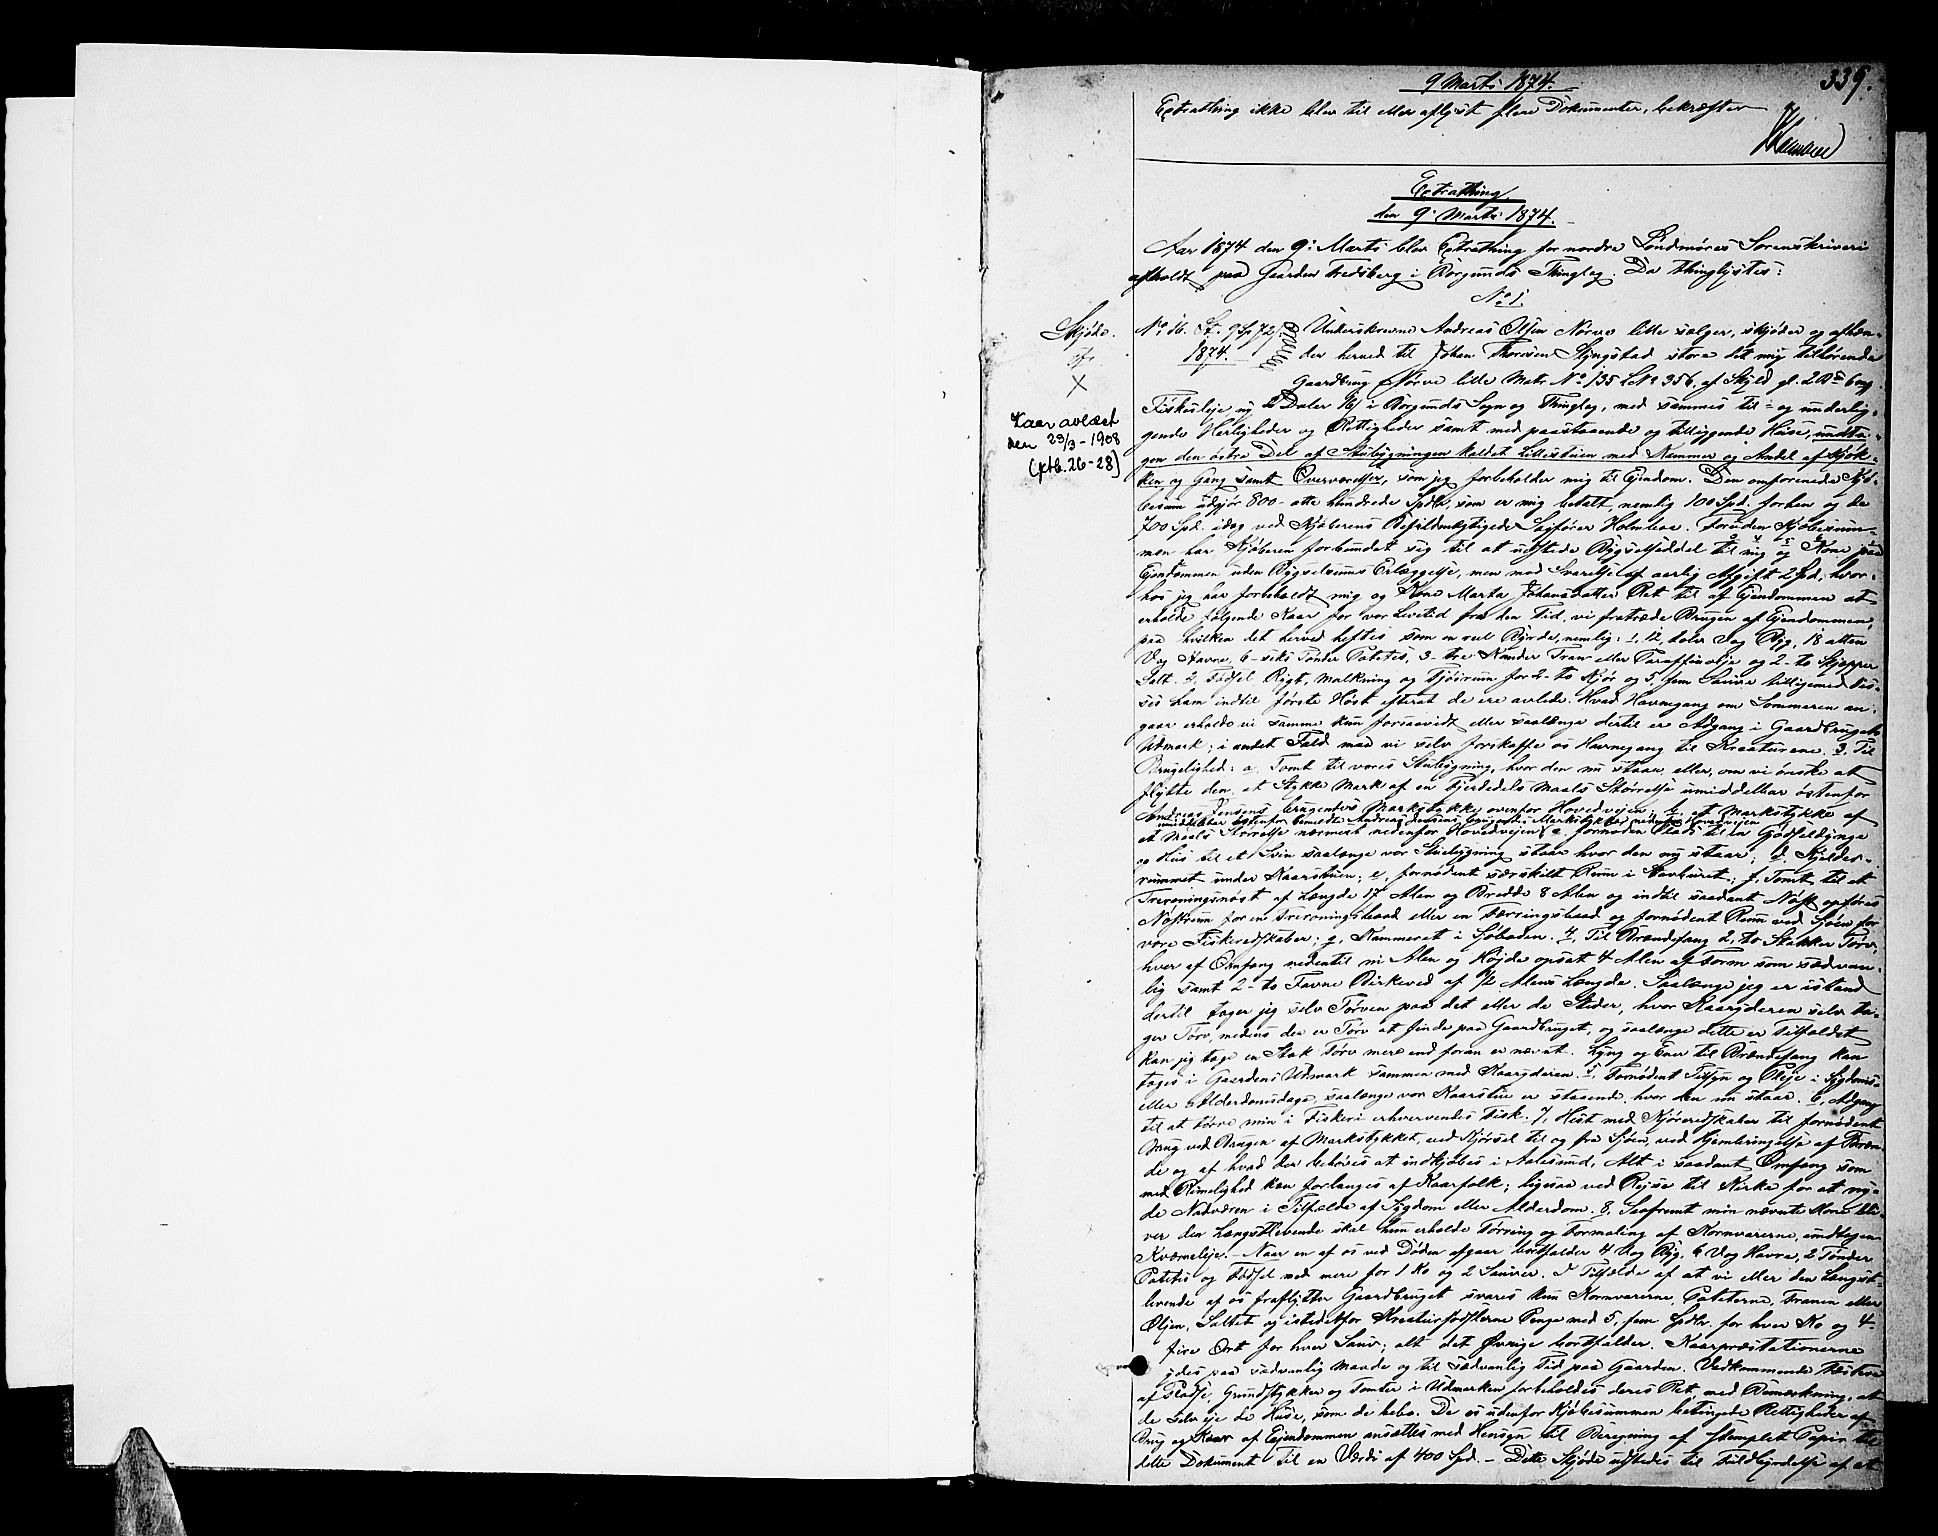 9 Marts 1874.
339.
Extrathing ikke blev til eller aflyst flere Dokumenter, bekræfter
Extrathing
den 9. Marts 1874.
Aar 1874 den 9: Marts blev Extrathing for nordre Söndmöres Sorenskriveri
afholdt paa Gaarden Fredsberg i Borgunds Thinglag. Da thinglystes:
No 1.
Skjöde.
No 16. St. 9 Sp 72/ Underskrevne Andreas Olsen Nörve lille sælger, skjöder og afhæn-
1874. der herved til Johan Thoresen Slyngstad store det mig tilhörende
X
Gaardbrug Nörve lille Matr No 135 L No 356, af Skyld gl. 2 Pd 6 mg
Fiskesleje ny 2 Daler 16/ i Borgunds Sogn og Thinglag, med sammes til- og underlig-
Kaar avlæst
den 23/3-1908
(ptb. 26-28)
gende Herligheder og Rettigheder samt med paastaaende og tilliggende Huse, undta-
gen den östre Del af Stuebygningen kaldet Lillestuen med Kammer og Andel af Kjök-
ken og Gang samt Overværelser, som jeg forbeholder mig til Eiendom. Den omforenede Kjö-
besum udgjör 800- otte hundrede Spdlr, som er mig betalt, nemlig 100 Spd. forhen og de
700 Spd. idag ved Kjöberens Befuldmægtigede Sagförer Holmboe. Foruden Kjöbesum-
men har Kjöberen forbundet sig til at udstede Bygselseddel til mig og Kone paa
Ejendommen uden Bygselsums Erlæggelse, men mod Svarelse af aarlig Afgift 2 Spd; hvor-
hos jeg har forbeholdt mig og Kone Marta Johansdatter Ret til af Ejendommen at
erholde fölgende Kaar for vor Levetid fra den Tid, vi fratræde Brugen af Ejendommen,
paa hvilken det herved heftes som en reel Byrde, nemlig: 1, 12, tolv Vog Byg, 18 atten
Vog Havre, 6- seks Tönder Potetes, 3- tre Kander Tran eller Paraffinolje og 2- to Skjepper
Salt. 2, Födsel Rögt, Malkning og Fjösrum for 2- to Kjör og 5, fem Sauer tilligemed dis-
ses Lam indtil förste Höst efterat de ere avlede. Hvad Havnegang om Sommeren an-
gaar erholde vi samme kun forsaavidt eller saalænge dertil er Adgang i Gaardbrugets
Udmark; i andet Fald maa vi selv forskaffe os Havnegang til Kreaturene. 3. Til
Brugelighed: a, Tomt til vores Stuebygning, hvor den nu staar, eller, om vi önske at
flytte den, et Stykke Mark af en Fjerdedels Maals Störrelse umiddelbar östenfor
Andreas Jensens brugendes Markstykke ovenfor Hovedvejen; b, et Markstykke af
umiddelbar östenfor bemeldte Andreas Jensens brugendes Markstykke nedenfor Hovedvejen
et Maals Störrelse nærmest nedenfor Hovedvejen; c, fornöden Plads til en Gjödseldynge
og Hus til et Svin saalænge vor Stuebygning staar hvor den nu staar; d, Kjelder-
rummet under Kaarstuen; e, fornödent særskilt Rum i Stabburet; f, Tomt til et
Treroningsnöst af Længde 17 Alen og Bredde 8 Alen og indtil saadant Nöst opföres
Nöstrum for en Treroningsbaad eller en Færingsbaad og fornödent Rum ved Sjöen for
vore Fiskeredskaber; g, Kammeret i Sjöboden. 4, Til Brændefang 2, to Stakker Törv,
hver af Omfang nedentil ni Alen og Höjde opsat 4 Alen af Form som sædvan-
lig samt 2- to Favne Birkeved af 1/2 Alens Længde. Saalænge jeg er istand
dertil tager jeg selv Törven paa det eller de Steder, hvor Kaaryderen selv ta-
ger Törv, medens der er Törv at finde paa Gaardbruget, og saalænge dette er Tilfældet
kan jeg tage en Stak Törv mere end foran er nævnt. Lyng og Ener til Brændefang kan
tages i Gaardens Udmark sammen med Kaaryderen. 5, Fornödent Tilsyn og Pleje i Sygdoms-
eller Alderdomsdage, saalænge vor Kaarstue er staaende, hvor den nu staar. 6, Adgang
til at törre min i Fiskeri erhvervendes Fisk. 7, Hest med Kjöreredskaber til fornödent
Brug ved Brugen af Markstykket, ved Kjörsel til og fra Sjöen, ved Hjembringelse af Bræn-
de og af hvad der behöves at indkjöbes i Aalesund, Alt i saadant Omfang som
med Rimelighed kan forlanges af Kaarfolk; ligesaa ved Rejse til Kirke for at ny-
de Nadveren i Tilfælde af Sygdom eller Alderdom. 8, Saafremt min nævnte Kone bli-
ver den Længstlevende skal hun erholde Törring og Formaling af Kornvarerne, undtagen
Kværneleje. - Naar en af os ved Döden afgaar bortfalder 4 Vog Byg, 6 Vog Havre, 2 Tönder
Potetes og Födsel med mere for 1 Ko og 2 Sauer. I Tilfælde af at vi eller den Længst-
levende af os fraflytter Gaardbruget svares kun Kornvarerne, Poteterne, Tranen eller
Oljen, Saltet og istedetfor Kreaturfödslerne Penge med 5, fem Spdlr. for hver Ko og 4-
fire Ort for hver Sau; alt det Övrige bortfalder. Kaarpræstationerne
ydes paa sædvanlig Maade og til sædvanlig Tid paa Gaarden. Vedkommende Fæstere
af Pladse, Grundstykker og Tomter i Udmarken forbeholdes deres Ret, med Bemærkning, at
de selv eje de Huse, som de bebo. De os udenfor Kjöbesummen betingede Rettigheder af
Brug og Kaar af Ejendommen ansættes med Hensyn til Beregning af Stemplet Papir til
dette Dokument til en Værdi af 400 Spd. - Dette Skjöde udstedes til Fuldbyrdelse af et